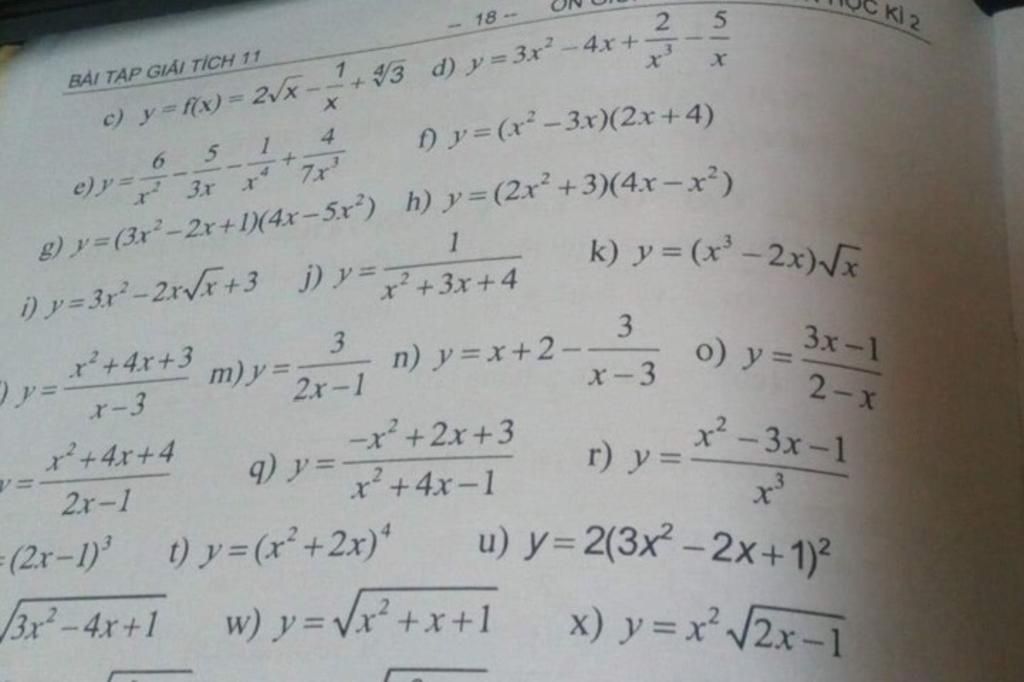 BÀI TẬP GIẢI TÍCH 11 - 18 - HỌC KÌ 2
c) y = f(x) = 2√x − 1/x + ∜3 d) y = 3x² − 4x + 2/x³ − 5/x
e) y = 6/x² − 5/3x − 1/x⁴ + 4/7x³ f) y = (x² − 3x)(2x + 4)
g) y = (3x² − 2x + 1)(4x − 5x²) h) y = (2x² + 3)(4x − x²)
i) y = 3x² − 2x√x + 3 j) y = 1/(x² + 3x + 4) k) y = (x³ − 2x)√x
) y = (x² + 4x + 3)/(x − 3) m) y = 3/(2x − 1) n) y = x + 2 − 3/(x − 3) o) y = (3x − 1)/(2 − x)
y = (x² + 4x + 4)/(2x − 1) q) y = (−x² + 2x + 3)/(x² + 4x − 1) r) y = (x² − 3x − 1)/x³
= (2x − 1)³ t) y = (x² + 2x)⁴ u) y = 2(3x² − 2x + 1)²
√(3x² − 4x + 1) w) y = √(x² + x + 1) x) y = x²√(2x − 1)